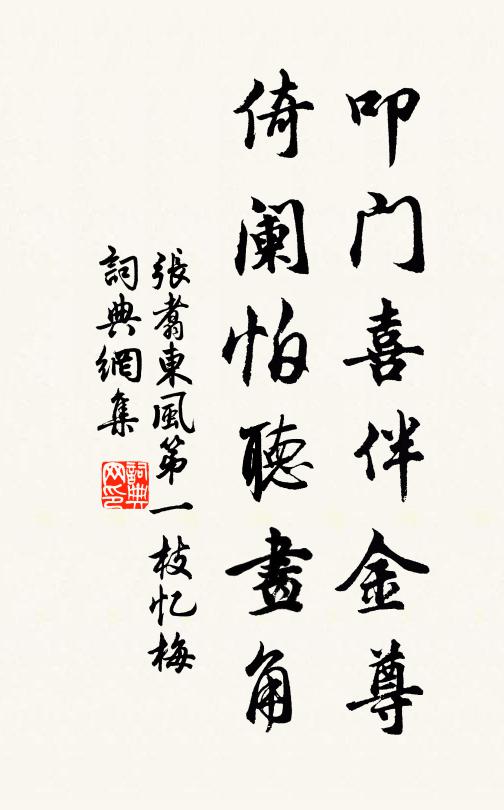 叩门喜伴金尊
倚阑怕聽畫角
張翥東風第一枝忆梅
詞典網集
詞典网印